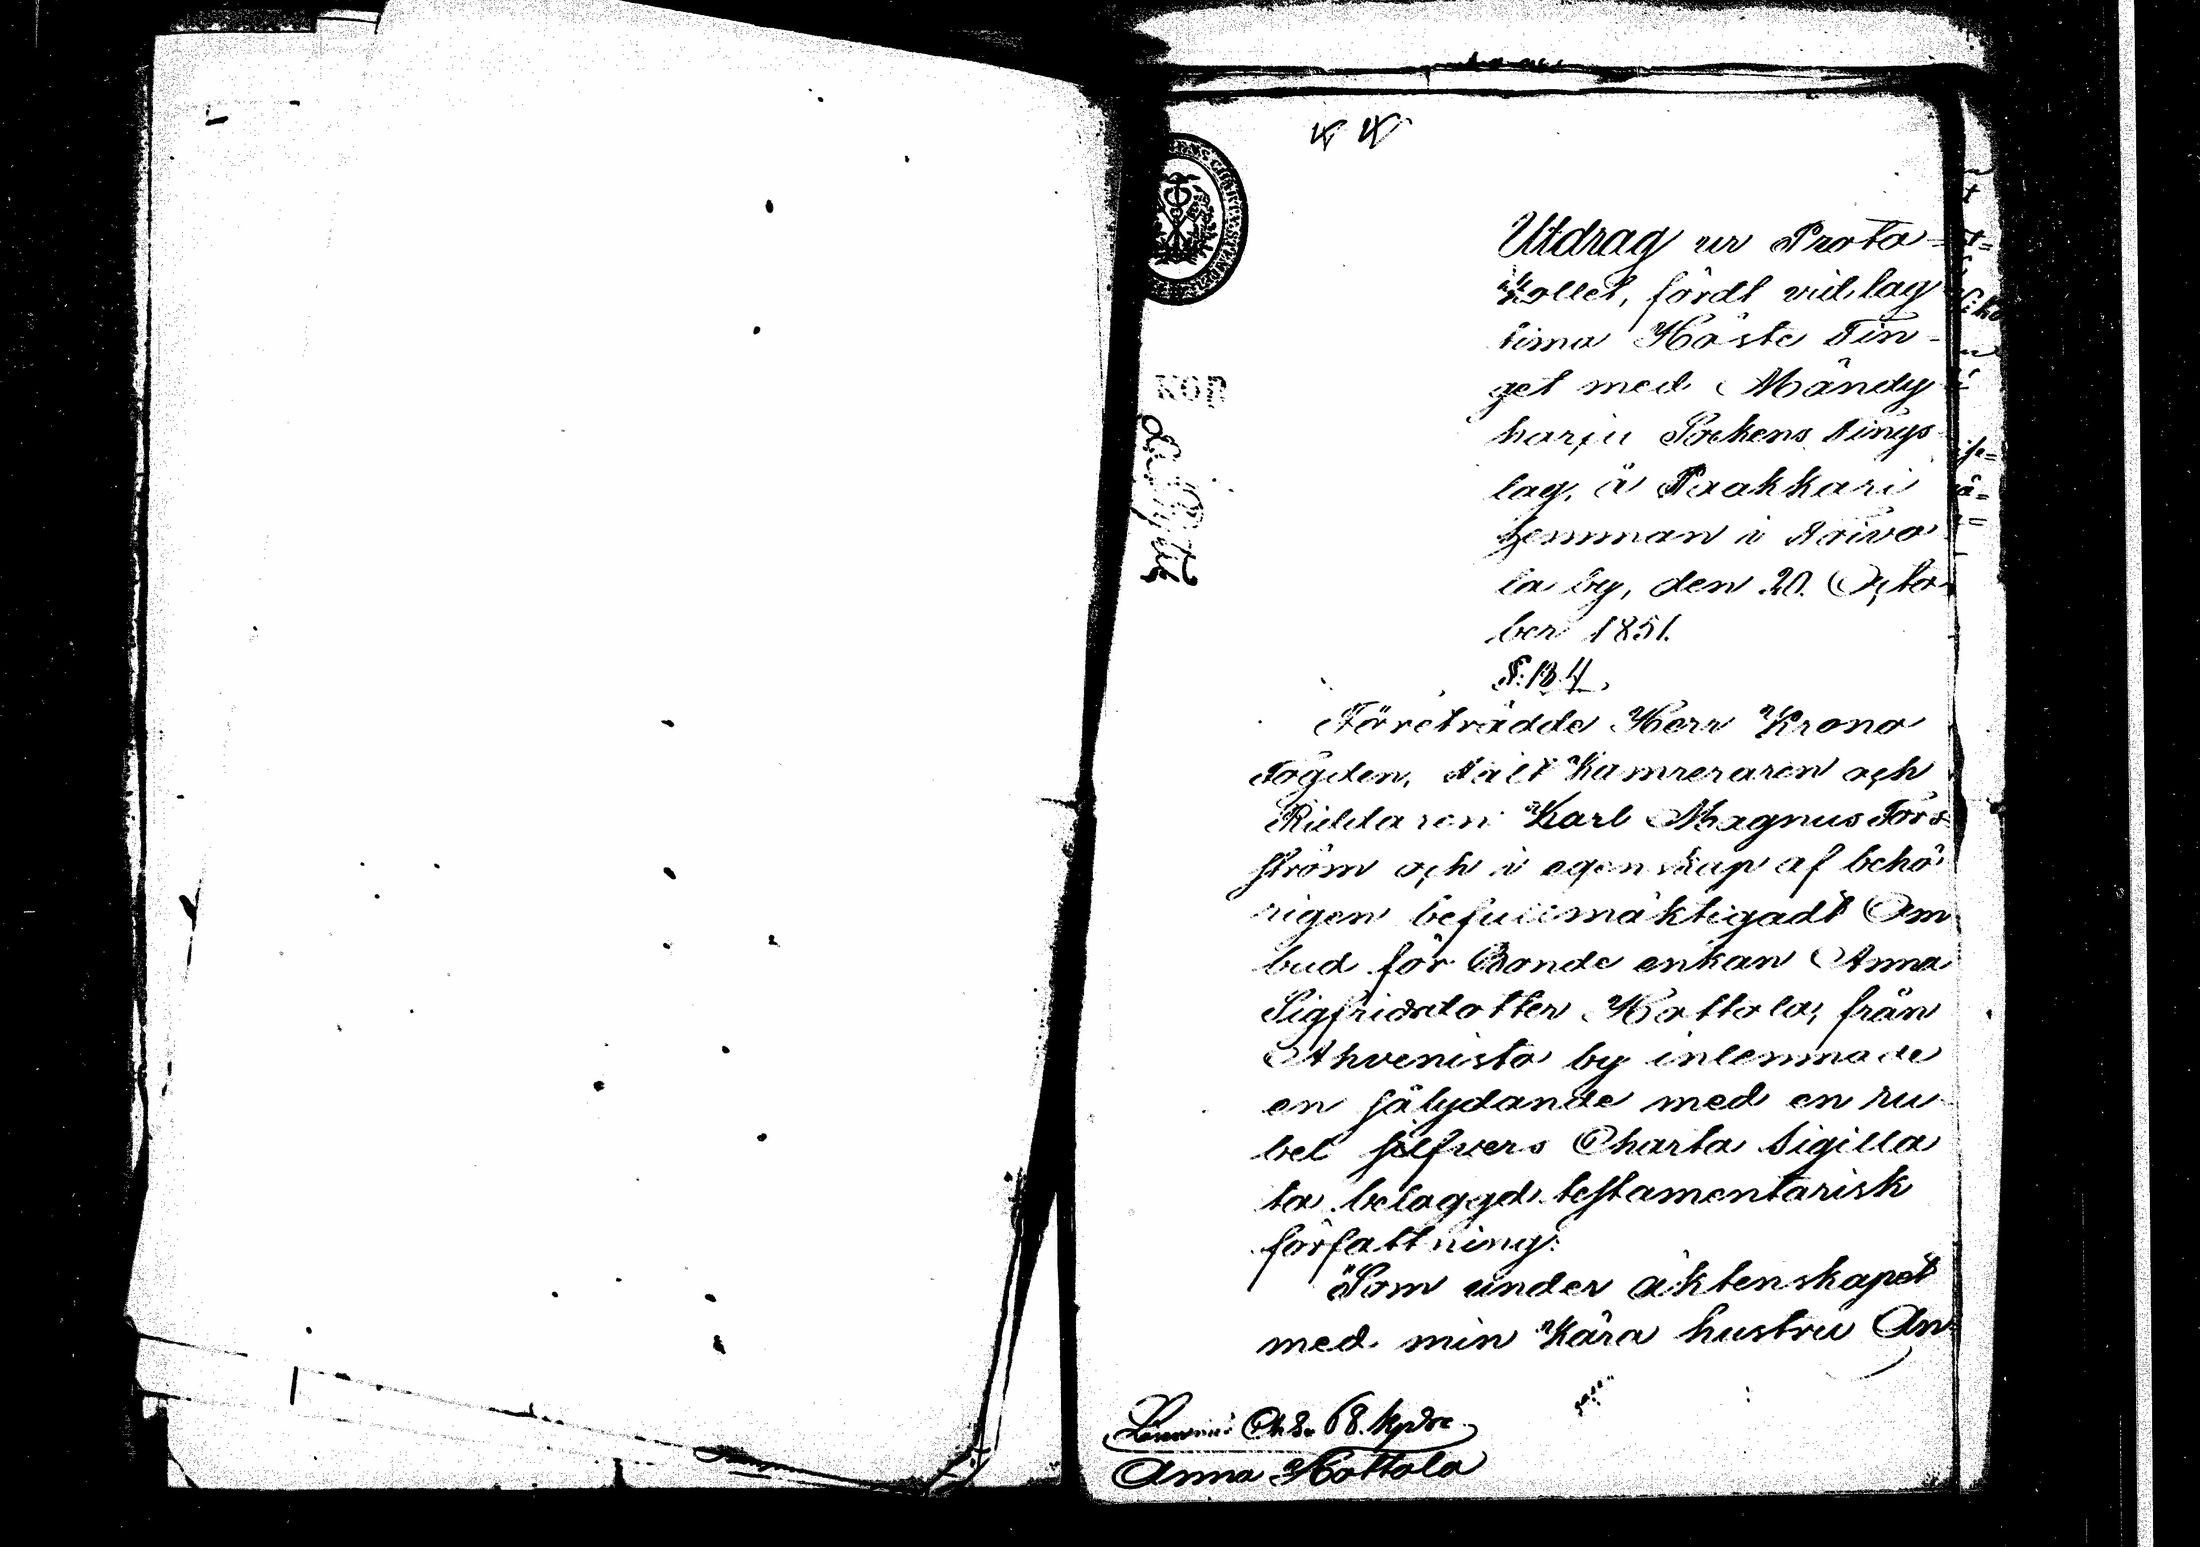 Utdrag ur Proto-
kollet, fördt vid lag
tima Höste Tin-
get med Mändy
harju Sockens Tings
lag, å Paakkari
hemman i Toivo
la by, den 20. Octo-
ber 1851.
§. 134.
Företrädde Herr Krono
Fogden, Fält Kamreraren och
Riddaren Karl Magnus Fors
ström och i egenskap af behö
rigen befullmäktigadt Om
bud för Bonde enkan Anna
Sigfridsdotter Hottola, från
Ahvenisto by inlemnade
en sålydande med en ru
bel silfvers Charta Sigilla
ta belaggd testamentarisk
författning:
"Som under äktenskapet
med min Kära hustru An-
Ch. S. 68. kp
Anna Hottola